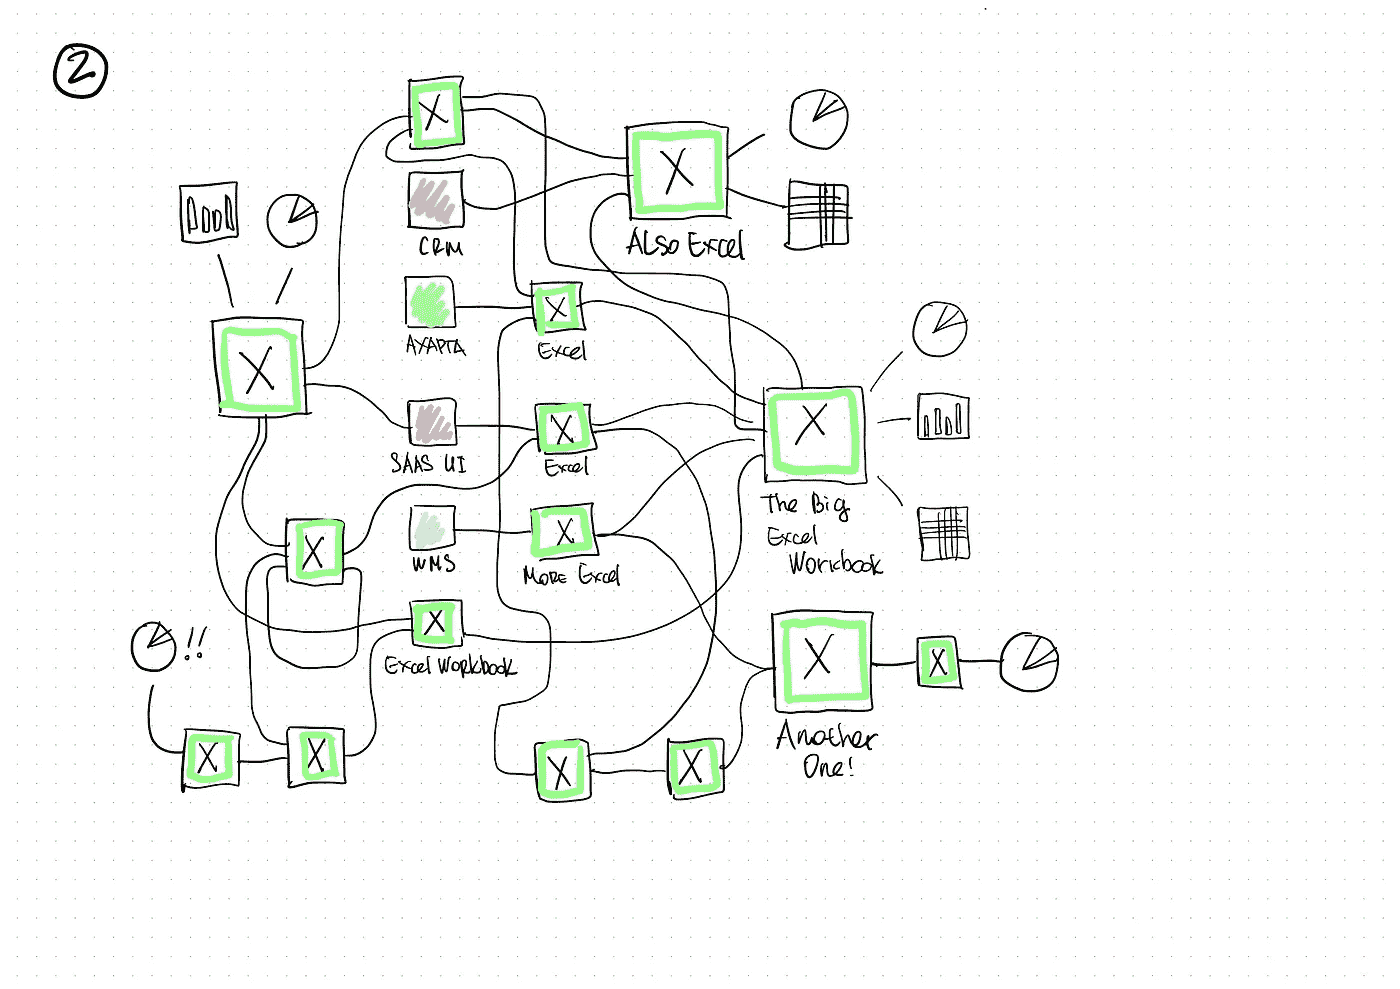 2
X
X
CRM
ALSO Excel
X
X
AXAPTA
Excel
X
X
SAAS UI
Excel
The Big
Excel
Workbook
X
X
WMS
MORE Excel
X
!!
Excel Workbook
X
X
Another
One!
X
X
X
X